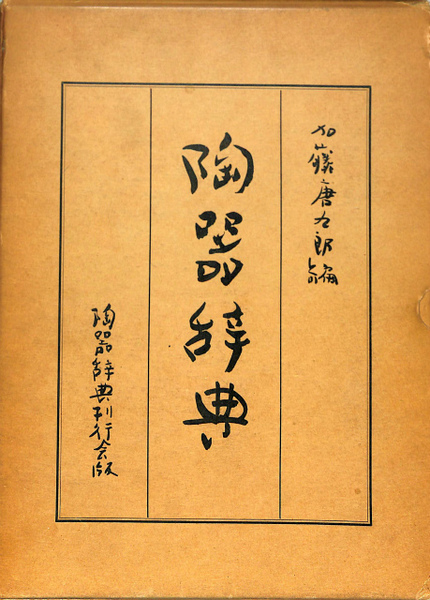 加藤唐九郎編
陶器辞典
陶器辞典刊行会版